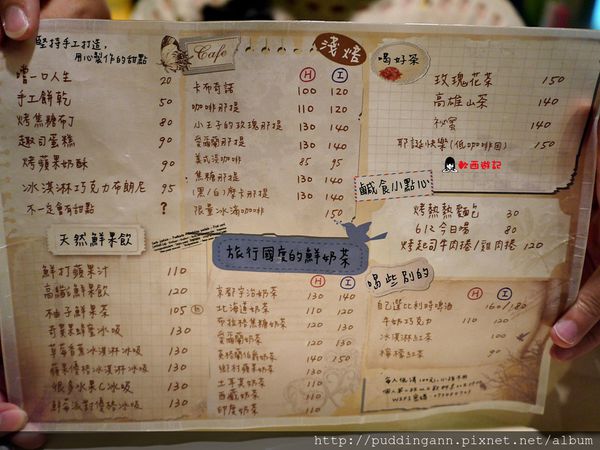 堅持手工打造，
用心製作的甜點
嚐一口人生 20
手工餅乾 50
烤焦糖布丁 80
起司蛋糕 90
烤蘋果奶酥 95
冰淇淋巧克力布朗尼 95
不一定會有甜點 ?
天然鮮果飲
鮮打蘋果汁 110
高纖鮮果飲 120
柚子鮮果茶 105 (h)
奇異果蜂蜜冰沙 130
草莓香蕉冰淇淋冰沙 130
蘋果優格冰淇淋冰沙 130
很多水果C冰沙 130
鮮莓派對優格冰沙 130
Cafe 淺焙
H I
卡布奇諾 100 120
咖啡那提 110 130
小王子的玫瑰那提 130 140
愛爾蘭那提 130 140
美式淺咖啡 85 95
焦糖那提 130 140
(黑/白)摩卡那提 130 140
限量冰滴咖啡 150
旅行國度的鮮奶茶
H I
京都宇治奶茶 130 140
北海道奶茶 110 120
布拉格焦糖奶茶 120 130
愛爾蘭奶茶 120 130
英格蘭伯爵奶茶 140 150
鄉村蘋果奶茶 130
土耳其奶茶 130
西藏奶茶 130
印度奶茶 130
喝好茶
玫瑰花茶 150
高雄山茶 140
祕蜜 140
耶誕快樂(低咖啡因) 150
軟西遊記
鹹食小點心
烤熱熱麵包 30
612今日場 80
烤起司牛肉捲/雞肉捲 120
喝些別的
H I
自己選比利時啤酒 160/180
牛奶巧克力 110 120
冰淇淋紅茶 100
檸檬紅茶 90
http://puddingann.pixnet.net/album